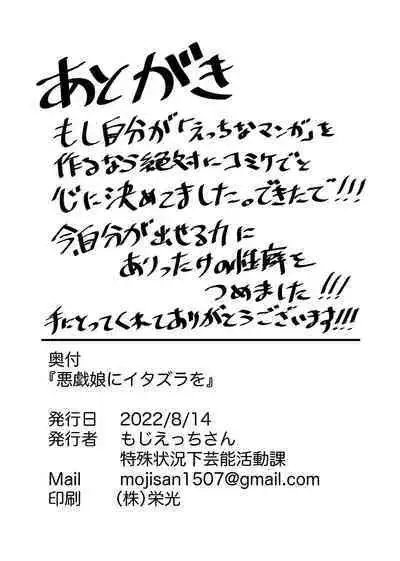 あとがき
もし自分が「えっちなマンガ」を
作るなら絶対にコミケでと
心に決めてました。できたで!!!
今、自分が出せる力に
ありったけの性癖を
つめました!!!
手にとってくれてありがとうございます!!!
奥付
『悪戯娘にイタズラを』
発行日 2022/8/14
発行者 もじえっちさん
特殊状況下芸能活動課
Mail mojisan1507@gmail.com
印刷 (株)栄光